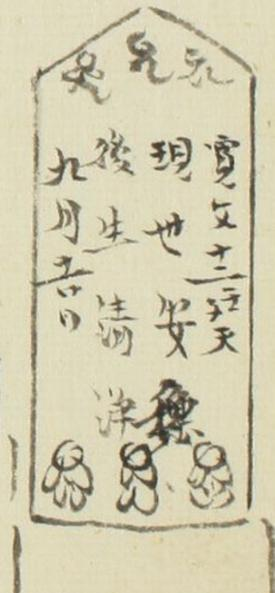 寛文十二壬子天
現世安穏
後生清浄
九月吉日